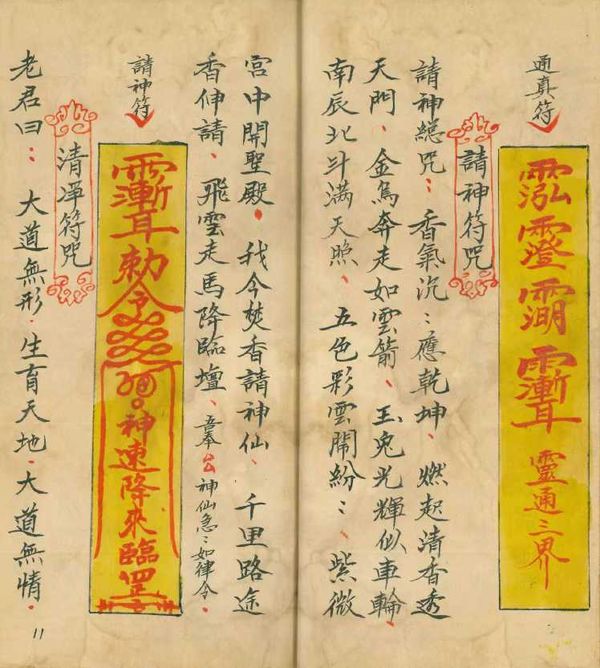 通真符
靈通三界
請神符咒
請神緫咒：香氣沉：應乾坤、燃起清香透
天門、金烏奔走如雲箭、玉兔光輝似車輪、
南辰北斗满天照、五色彩雲鬧紛：、紫微
宮中開聖殿、我今焚香請神仙、千里路途
香伸請、飛雲走馬降臨壇、吾奉 神仙急：如律令、
請神符
勅令 神速降來臨罡
清淨符咒
老君曰：大道無形．生育天地．大道無情．
11